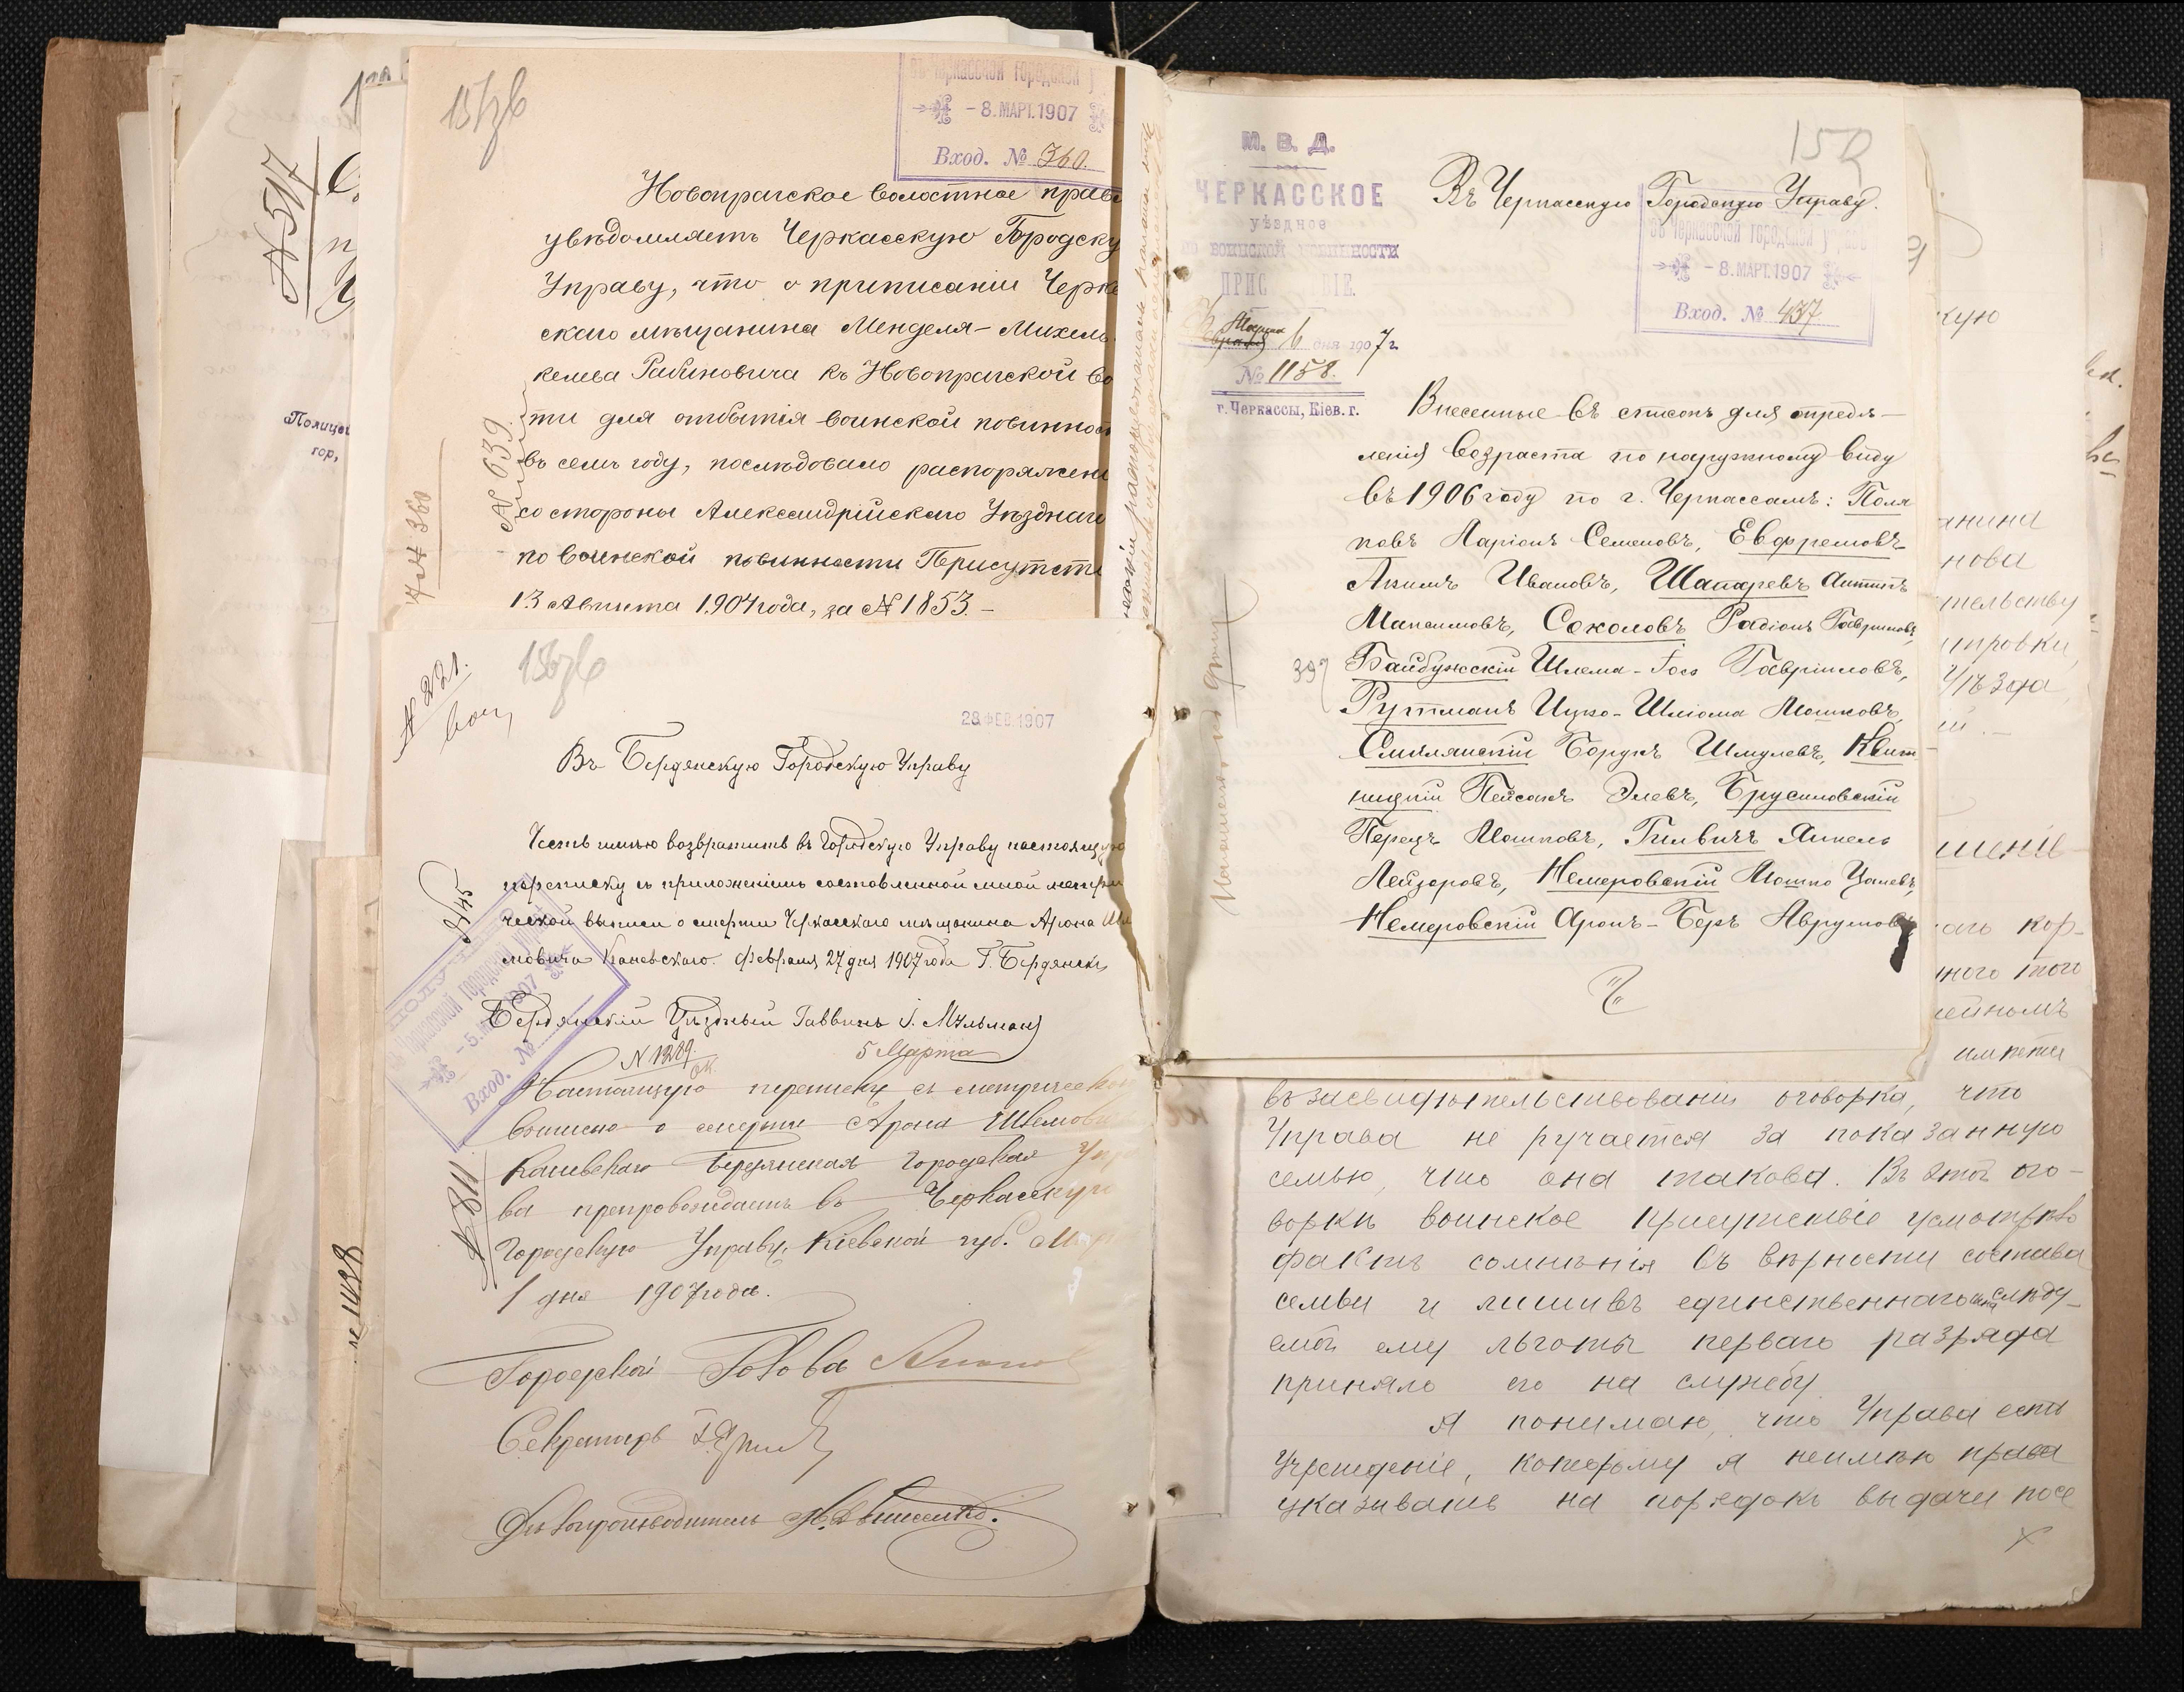 № 517
Полицей
гор,
№ 1498
въ Черкасской городской у
- 8. МАРТ. 1907
Вход. № 360.
Новопражское волостное правл
увѣдомляетъ Черкасскую Городску
Управу, что о приписаніи Черка
скаго мѣщанина Менделя-Михель
келева Рабиновича къ Новопражской во
ти для отбытія воинской повиннос
въ семъ году, послѣдовало распоряжені
со стороны Александрійскаго Уѣзднаго
по воинской повинности Присутстві
13 Августа 1904 года, за № 1853 –
№ 639
№ 360
№ 221.
28 ФЕВ. 1907
Въ Бердянскую Городскую Управу
Честь имѣю возвратить въ Городскую Управу настоящую
переписку съ приложеніемъ составленной мной метри
ческой выписи о смерти Черкасскаго мѣщанина Арона Шле
мовича Каневскаго. Февраля 27 дня 1907 года Г. Бердянскъ
Бердянскій Уѣздный Раввинъ І. Мильман
въ Черкасской городской
- 5. 1907
Вход. №
№ 1229.
5 Марта
Настоящую переписку съ метрической
выписью о смерти Арона Шлемови
Каневскаго Бердянская Городская Упра
ва препровождаетъ въ Черкасскую
Городскую Управу, Кіевской губ. Мар
1 дня 1907 года.
№ 811
Городской Голова
Секретарь
Дѣлопроизводитель
М. В. Д.
ЧЕРКАССКОЕ
уѣздное
по воинской повинности
ПРИС ІЕ.
Марта 6 дня 1907 г.
№ 1158.
г. Черкассы, Кіев. г.
Въ Черкасскую Городскую Управу.
въ Черкасской городской управѣ
- 8. МАРТ. 1907
Вход. № 437
Внесенные въ списокъ для опредѣ–
ленія возраста по наружному виду
въ 1906 году по г. Черкассамъ: Поля
ковъ Ларіонъ Семеновъ, Евфремовъ
Акимъ Ивановъ, Шапаревъ Антипъ
Максимовъ, Соколовъ Радіонъ Гавриловъ,
Байбужскій Шлема-Іось Гавріиловъ,
Рутманъ Ицко-Шліома Мошковъ,
Смилянскій Борухъ Шмулевъ, Квит
ницкій Пейсахъ Элевъ, Брусиловскій
Перецъ Мошковъ, Гилвичъ Янкель
Лейзоровъ, Немеровскій Мошко Цалевъ,
Немеровскій Аронъ-Беръ Аврумовъ
397
въ засвидѣтельствованіи оговорка, что
Управа не ручается за показанную
семью, что она такова. Въ этой ого–
воркѣ воинское присутствіе усмотрѣло
фактъ сомнѣнія въ вѣрности состава
семьи и лишивъ единственнаго сына слѣду–
емой ему льготы перваго разряда
приняло его на службу
Я понимаю, что Управа есть
Учрежденіе, которому я неимѣю права
указывать на порядокъ выдачи посе
нова
тельству
Уѣзда
кор–
ного того
ейномъ
имѣти